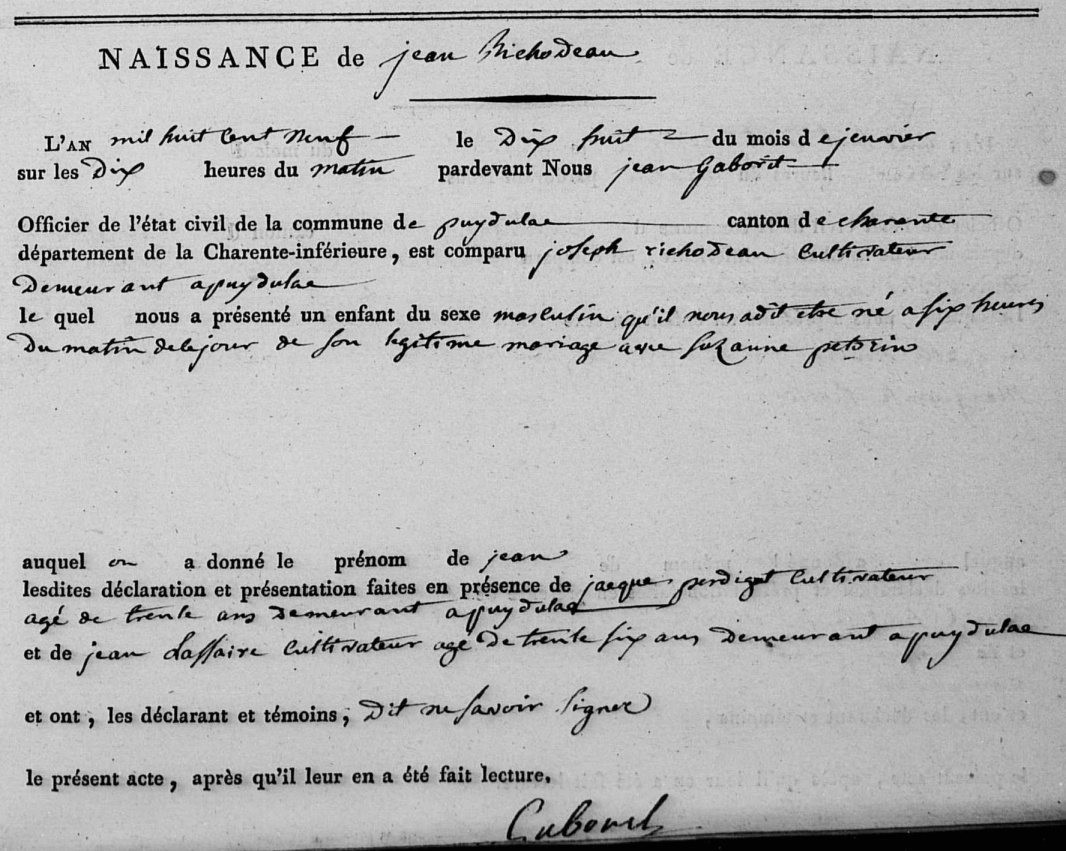 NAISSANCE de jean Richodeau
L'AN mil huit Cent neuf le Dix huit du mois de jenvier
sur les Dix heures du matin pardevant Nous jean Gaborit
Officier de l'état civil de la commune de puydulac canton de charente
département de la Charente-inférieure, est comparu joseph richodeau Cultivateur
Demeurant a puydulac
le quel nous a présenté un enfant du sexe masculin qu'il nous a dit etre né a six heures
Du matin de le jour de son legitime mariage avec Suzanne
auquel on a donné le prénom de jean
lesdites déclaration et présentation faites en présence de jacque perdiget Cultivateur
agé de trente ans Demeurant a puydulac
et de jean Laffaire Cultivateur agé De trente six ans Demeurant a puydulac
et ont, les déclarant et témoins, Dit ne savoir signer
le présent acte, après qu'il leur en a été fait lecture.